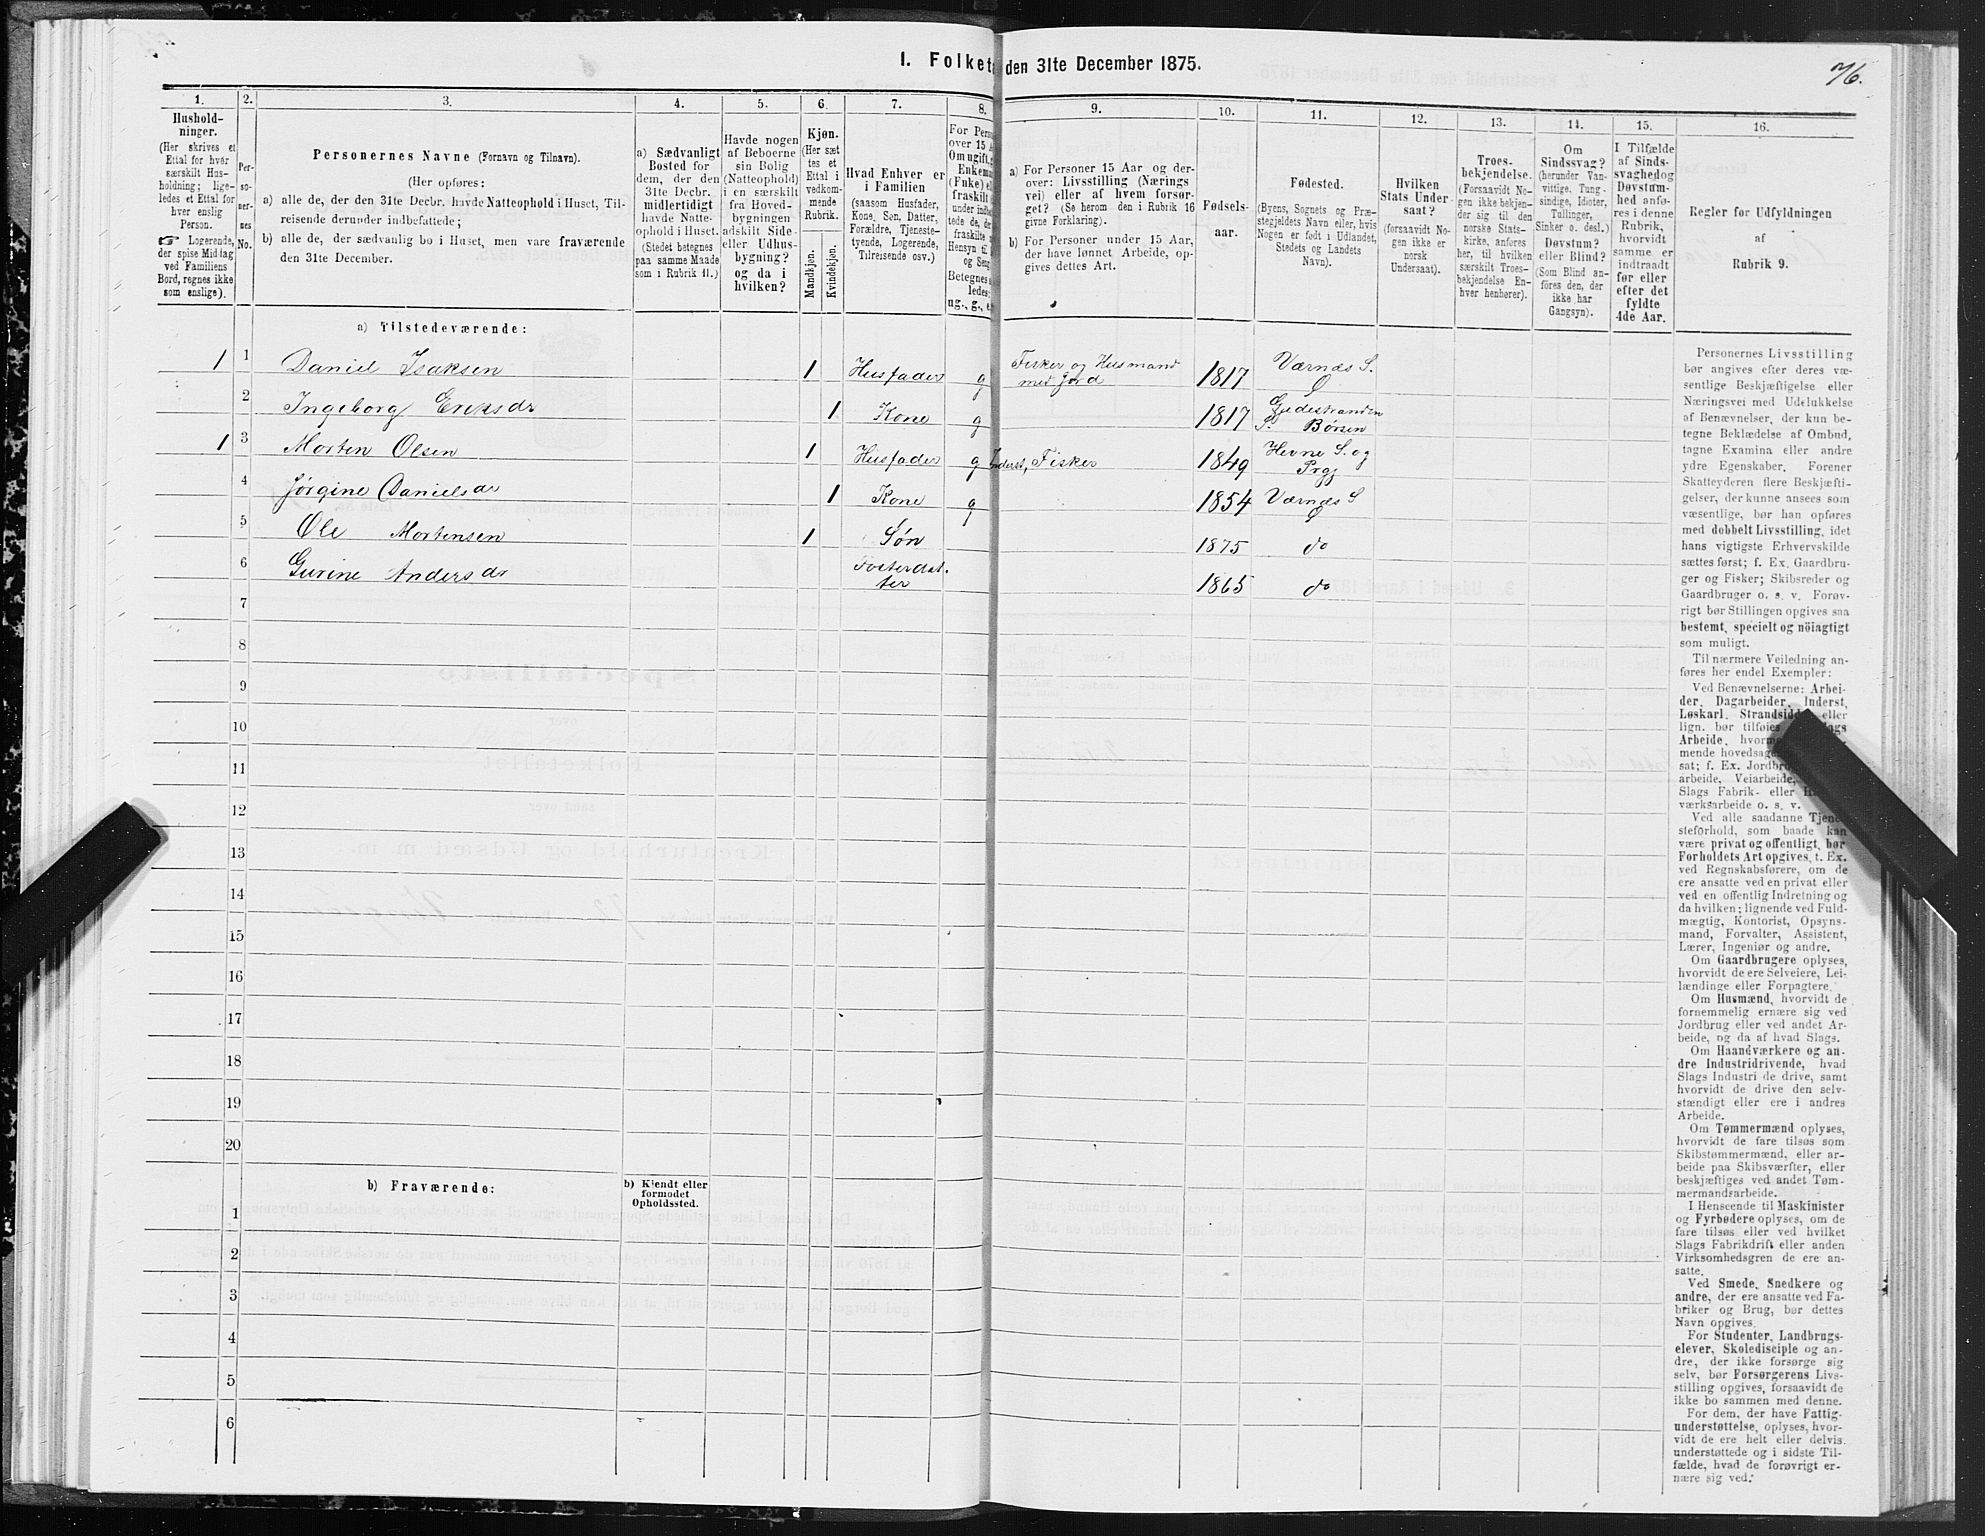 I. Folket den 31te December 1875.
76.
1. 2. 3. 4. 5. 6. 7. 8. 9. 10. 11. 12. 13. 14. 15. 16.
Hushold-
ninger.
(Her skrives et
Ettal for hver
særskilt Hus-
holdning; lige-
ledes et Ettal for
hver enslig
Person.
☞ Logerende,
der spise Middag
ved Familiens
Bord, regnes ikke
som enslige).
Per-
so-
ner-
nes
No.
Personernes Navne (Fornavn og Tilnavn).
(Her opføres:
a) alle de, der den 31te Decbr. havde Natteophold i Huset, Til-
reisende derunder indbefattede;
b) alle de, der sædvanlig bo i Huset, men vare fraværende
den 31te December.
a) Sædvanligt
Bosted for
dem, der den
31te Decbr.
midlertidigt
havde Natte-
ophold i Huset.
(Stedet betegnes
paa samme Maade
som i Rubrik 11.)
Havde nogen
af Beboerne
sin Bolig
(Natteophold)
i en særskilt
fra Hoved-
bygningen
adskilt Side-
eller Udhus-
bygning?
og da i
hvilken?
Kjøn.
(Her sæt-
tes et
Ettal i
vedkom-
mende
Rubrik.
Mandkjøn.
Kvindekjøn.
Hvad Enhver er
i Familien
(saasom Husfader,
Kone, Søn, Datter,
Forældre, Tjeneste-
tyende, Logerende,
Tilreisende osv.)
For Pers
over 15 A
Om ugift,
Enkema
(Enke) e
fraskilt
under indbe
tede de, der
fraskilte
Hensyn til
og Seng
Betegnes
ledes:
ug., g., e
a) For Personer 15 Aar og der-
over: Livsstilling (Nærings
vei) eller af hvem forsør-
get? (Se herom den i Rubrik 16
givne Forklaring).
b) For Personer under 15 Aar,
der have lønnet Arbeide, op-
gives dettes Art.
Fødsels-
aar.
Fødested.
(Byens, Sognets og Præ-
stegjeldets Navn eller, hvis
Nogen er født i Udlandet,
Stedets og Landets
Navn).
Hvilken
Stats Under
saat?
(forsaavidt No-
gen ikke er
norsk
Undersaat).
Troes-
bekjendelse.
(Forsaavidt No-
gen ikke bekjen-
der sig til den
norske Stats-
kirke, anføres
her, til hvilken
særskilt Troes-
bekjendelse En-
hver henhører).
Om
Sindssvag?
(herunder Van-
vittige, Tung-
sindige, Idioter,
Tullinger,
Sinker o. desl.)
Døvstum?
eller Blind?
(Som Blind an-
føres den, der
ikke har
Gangsyn).
I Tilfælde
af Sinds-
svaghed og
Døvstum-
hed anfø-
res i denne
Rubrik,
hvorvidt
samme er
indtraadt
før eller
efter det
fyldte
4de Aar.
Regler for Udfyldningen
af
Rubrik 9.
a) Tilstedeværende:
1 1 Daniel Isaksen 1 Husfader g Fisker og Husmand
med Jord 1817 Værnæs S.
2 Ingeborg Eriksdr 1 Kone g 1817
S. Børsen
1 3 Morten Olsen 1 Husfader g Inderst, Fisker 1849 Hevne S. og
Prgj
4 Jørgine Danielsdr 1 Kone g 1854 Værnæs S
5 Ole Mortensen 1 Søn 1875 do
6 Gurine Andersdr Fosterdat-
ter 1865 do
7
8
9
10
11
12
13
14
15
16
17
18
19
20
b) Fraværende:
b) Kjendt eller
formodet
Opholdssted.
1
2
3
4
5
6
Personernes Livsstilling
bør angives efter deres væ-
sentlige Beskjæftigelse eller
Næringsvei med Udelukkelse
af Benævnelser, der kun be-
tegne Beklædelse af Ombud,
tagne Examina eller andre
ydre Egenskaber. Forener
Skatteyderen flere Beskjæfti-
gelser, der kunne ansees som
væsentlige, bør han opføres
med dobbelt Livsstilling, idet
hans vigtigste Erhvervskilde
sættes først; f. Ex. Gaardbru-
ger og Fisker; Skibsreder og
Gaardbruger o. s. v. Forøv-
rigt bør Stillingen opgives saa
bestemt, specielt og nöiagtigt
som muligt.
Til nærmere Veiledning an-
føres her endel Exempler:
Ved Benævnelserne: Arbei-
der, Dagarbeider, Inderst,
Løskarl, Strandsidder eller
lign. bør tilføies
Arbeide, hvor
mende hovedsa
sat; f. Ex. Jordbr
arbeide, Veiarbeide,
Slags Fabrik- eller
værksarbeide o. s. v.
Ved alle saadanne Tjene
steforhold, som baade kan
være privat og offentligt, bør
Forholdets Art opgives, t. Ex.
ved Regnskabsførere, om de
ere ansatte ved en privat eller
ved en offentlig Indretning og
da hvilken; lignende ved Fuld-
mægtig, Kontorist, Opsyns-
mand, Forvalter, Assistent,
Lærer, Ingeniør og andre.
Om Gaardbrugere oplyses,
hvorvidt de ere Selveiere, Lei-
lændinge eller Forpagtere.
Om Husmænd, hvorvidt de
fornemmelig ernære sig ved
Jordbrug eller ved andet Ar-
beide, og da af hvad Slags.
Om Haandværkere og an-
dre Industridrivende, hvad
Slags Industri de drive, samt
hvorvidt de drive den selv-
stændigt eller ere i andres
Arbeide.
Om Tømmermænd oplyses,
hvorvidt de fare tilsøs som
Skibstømmermænd, eller ar-
beide paa Skibsværfter, eller
beskjæftiges ved andet Tøm-
mermandsarbeide.
I Henseende til Maskinister
og Fyrbødere oplyses, om de
fare tilsøs eller ved hvilket
Slags Fabrikdrift eller anden
Virksomhedsgren de ere an-
satte.
Ved Smede, Snedkere og
andre, der ere ansatte ved Fa-
briker og Brug, bør dettes
Navn opgives.
For Studenter, Landbrugs-
elever, Skoledisciple og an-
dre, der ikke forsørge sig
selv, bør Forsørgerens Livs-
stilling opgives, forsaavidt de
ikke bo sammen med denne.
For dem, der have Fattig-
understøttelse, oplyses, hvor-
vidt de ere helt eller delvis
understøttede og i sidste Til-
fælde, hvad de forøvrigt er-
nære sig ved.